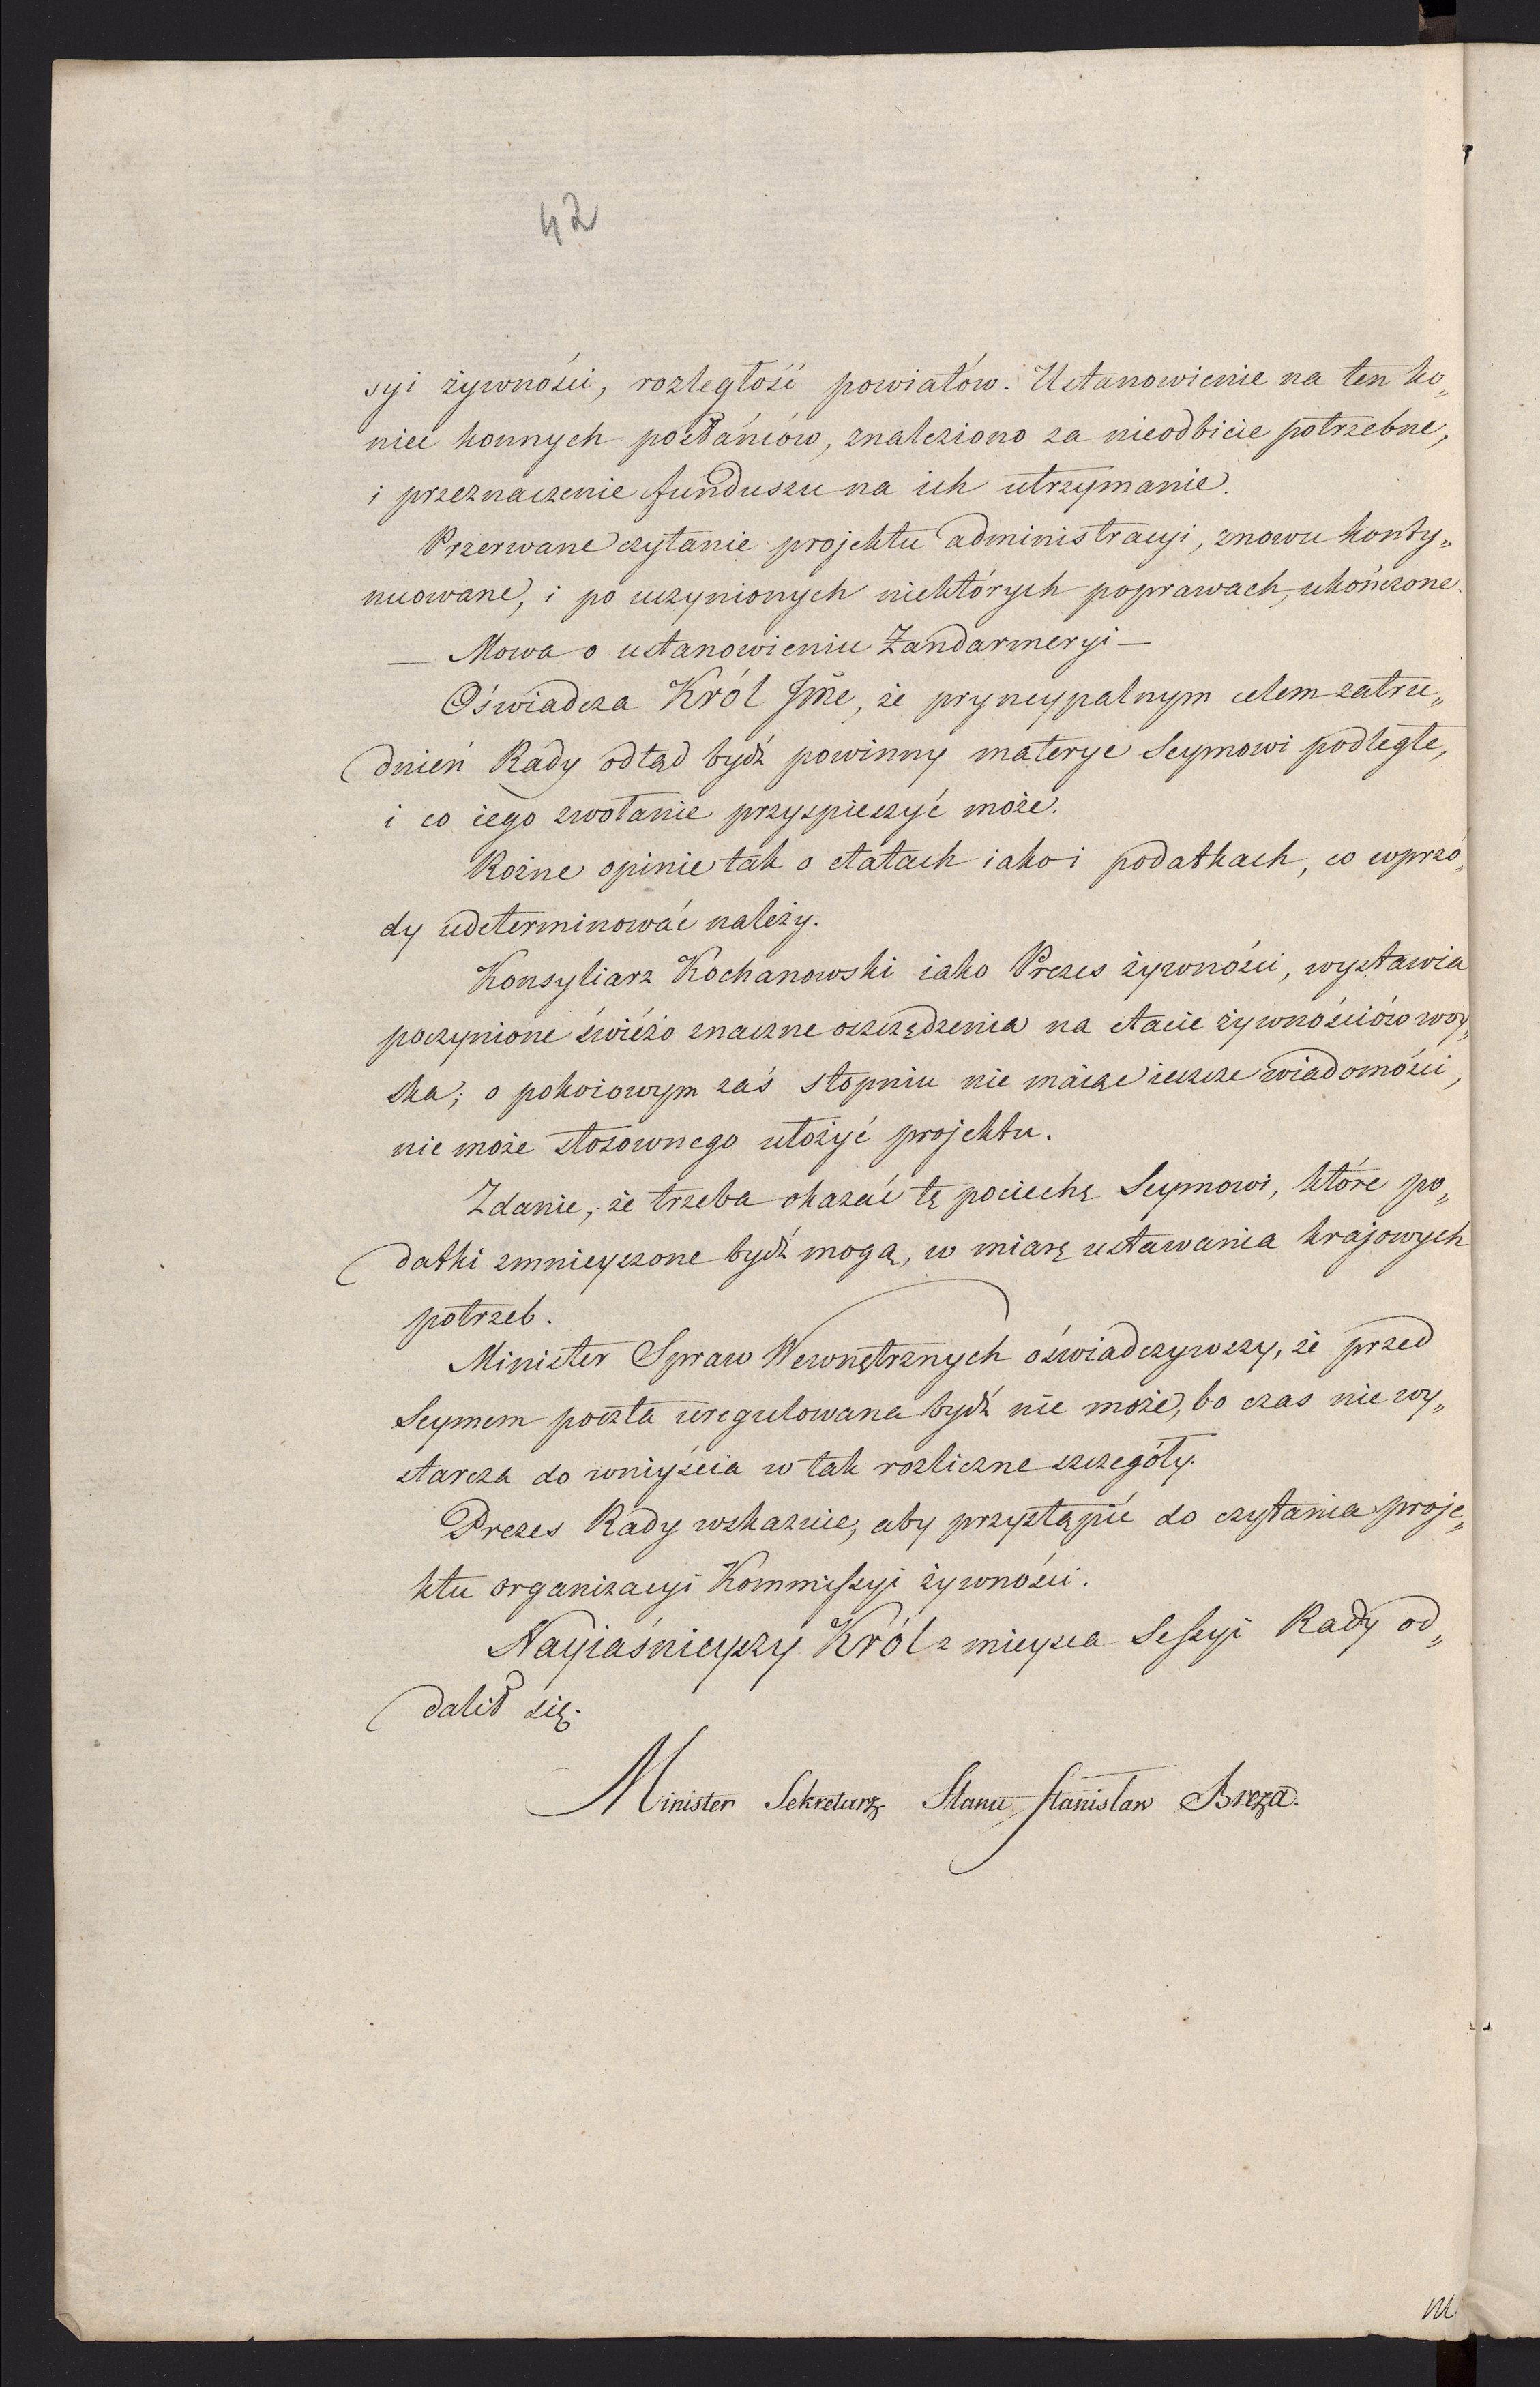 42
syi żywności, rozległość powiatów. Ustanowienie na ten ko„
niec konnych posłańców, znaleziono za nieodbicie potrzebne,
i przeznaczenie funduszu na ich utrzymanie.
Przerwane czytanie projektu administracyi, znowu konty„
nuowane, i po uczynionych niektórych poprawach, ukończone.
— Mowa o ustanowieniu Żandarmeryi —
Oświadcza Król Jmc, że pryncypalnym celem zatru„
dnień Rady odtąd bydź powinny materye Seymowi podległe,
i co iego zwołanie przyspieszyć może.
Rożne opinie tak o etatach iako i podatkach, co wprzó„
dy udeterminować należy.
Konsyliarz Kochanowski iako Prezes żywności, wystawia
poczynione świéżo znaczne oszczędzenia na etacie żywnościów woy„
ska; o pokoiowym zaś stopniu nie maiąc ieszcze wiadomości,
nie może stosownego ułożyć projektu.
Zdanie, że trzeba okazać tę pociechę Seymowi, które po„
datki zmnieyszone bydź mogą, w miarę ustawania krajowych
potrzeb.
Minister Spraw Wewnętrznych oświadczywszy, że przed
Seymem poczta uregulowana bydź nie może, bo czas nie wy„
starcza do wniyścia w tak rozliczne szczegóły.
Prezes Rady wskazuie, aby przystąpić do czytania proje„
ktu organizacyi Kommissyi żywności.
Nayiaśnieyszy Król z mieysca Sessyi Rady od„
dalił się.
Minister Sekretarz Stanu Stanisław Breza.